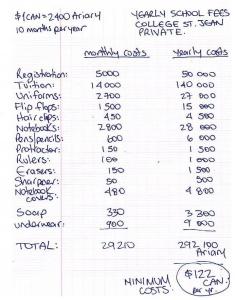 $1CAN = 2400 Ariary
10 months per year
YEARLY SCHOOL FEES
COLLEGE ST. JEAN
PRIVATE.
monthly costs yearly costs
Registration: 5000 50 000
Tuition: 14000 140 000
Uniforms: 2700 27 000
Flip flops: 1500 15 000
Hair clips: 450 4 500
Notebooks: 2800 28 000
Pens/pencils: 600 6 000
Protractor: 150 1 500
Rulers: 100 1 000
Erasers: 150 1 500
Sharpener: 50 500
Notebook covers: 480 4 800
Soap 330 3 300
underwear: 900 9 000
TOTAL: 29210 292 100
Ariary
MINIMUM COSTS: $122 CAN. per yr.